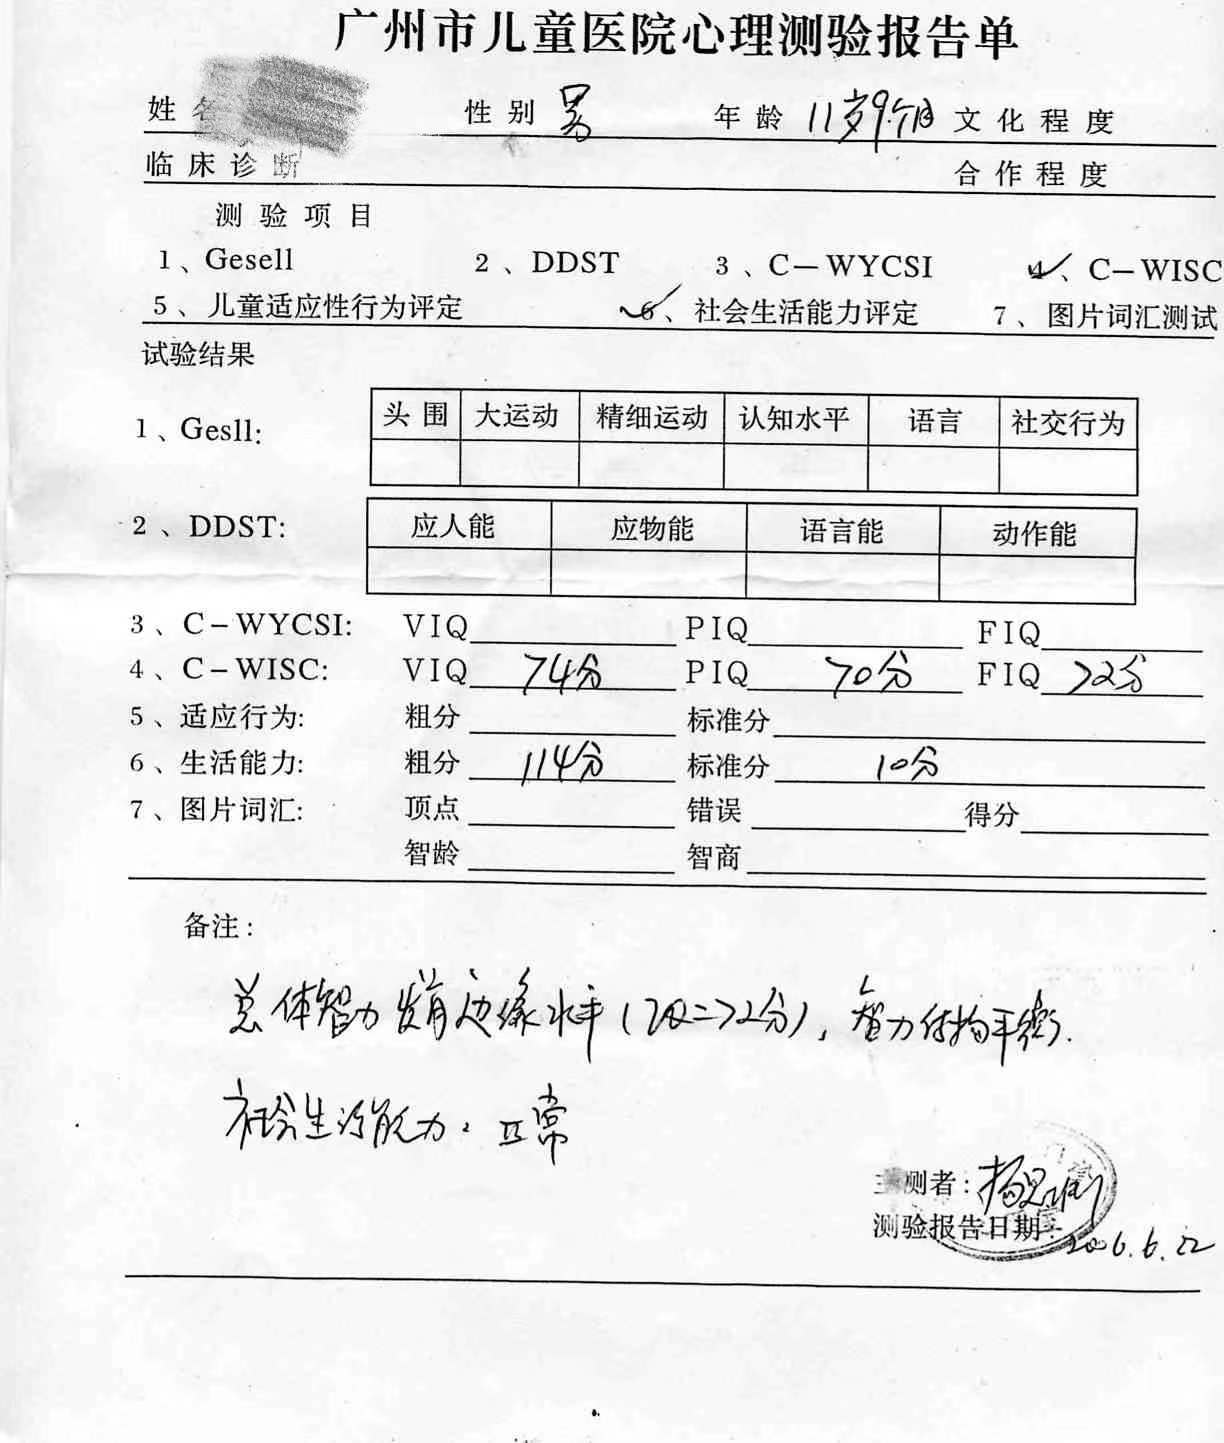 广州市儿童医院心理测验报告单
姓名 性别 男 年龄 11岁9个月 文化程度
临床诊断 合作程度
测验项目
1、Gesell 2、DDST 3、C-WYCSI 4、C-WISC
5、儿童适应性行为评定 6、社会生活能力评定 7、图片词汇测试
试验结果
1、Gesll: 头围 大运动 精细运动 认知水平 语言 社交行为
2、DDST: 应人能 应物能 语言能 动作能
3、C-WYCSI: VIQ PIQ FIQ
4、C-WISC: VIQ 74分 PIQ 70分 FIQ 72分
5、适应行为: 粗分 标准分
6、生活能力: 粗分 114分 标准分 10分
7、图片词汇: 顶点 错误 得分
智龄 智商
备注:
总体智力发育边缘水平(IQ=72分),智力结构平衡.
社会生活能力:正常
主测者:
测验报告日期: 2006.6.22